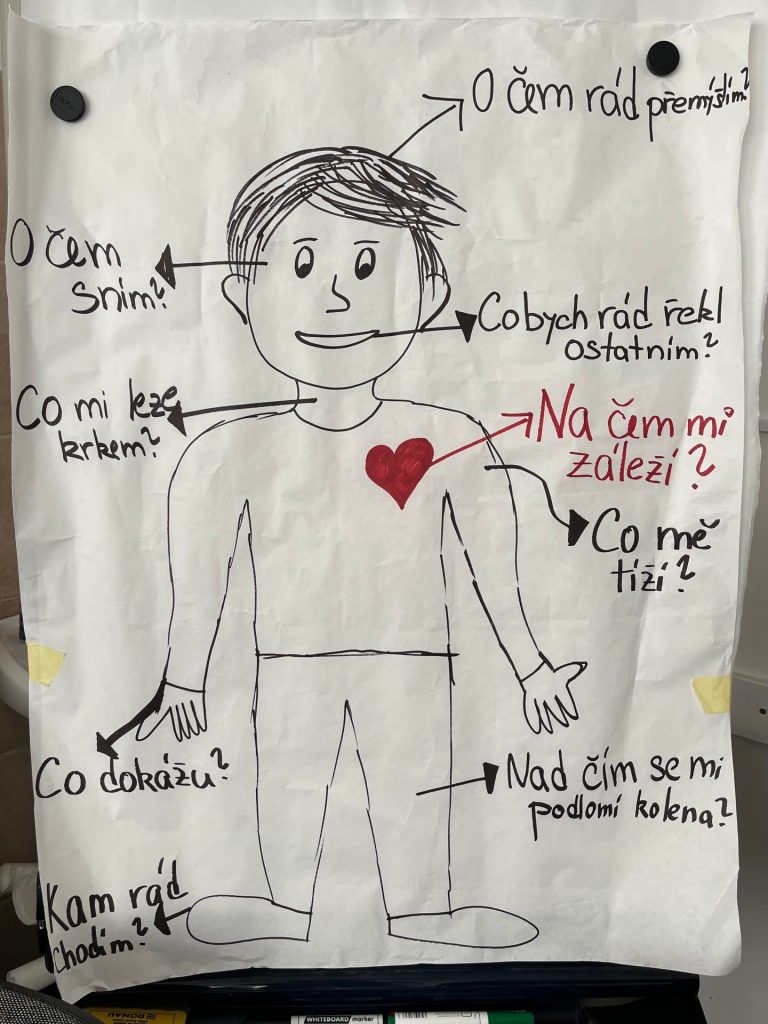 O čem rád přemýšlím?
O čem
sním?
Co bych rád řekl
ostatním?
Co mi leze
krkem?
Na čem mi
záleží?
Co mě
tíží?
Co dokážu?
Nad čím se mi
podlomí kolena?
Kam rád
chodím?
DONAU
WHITEBOARD marker